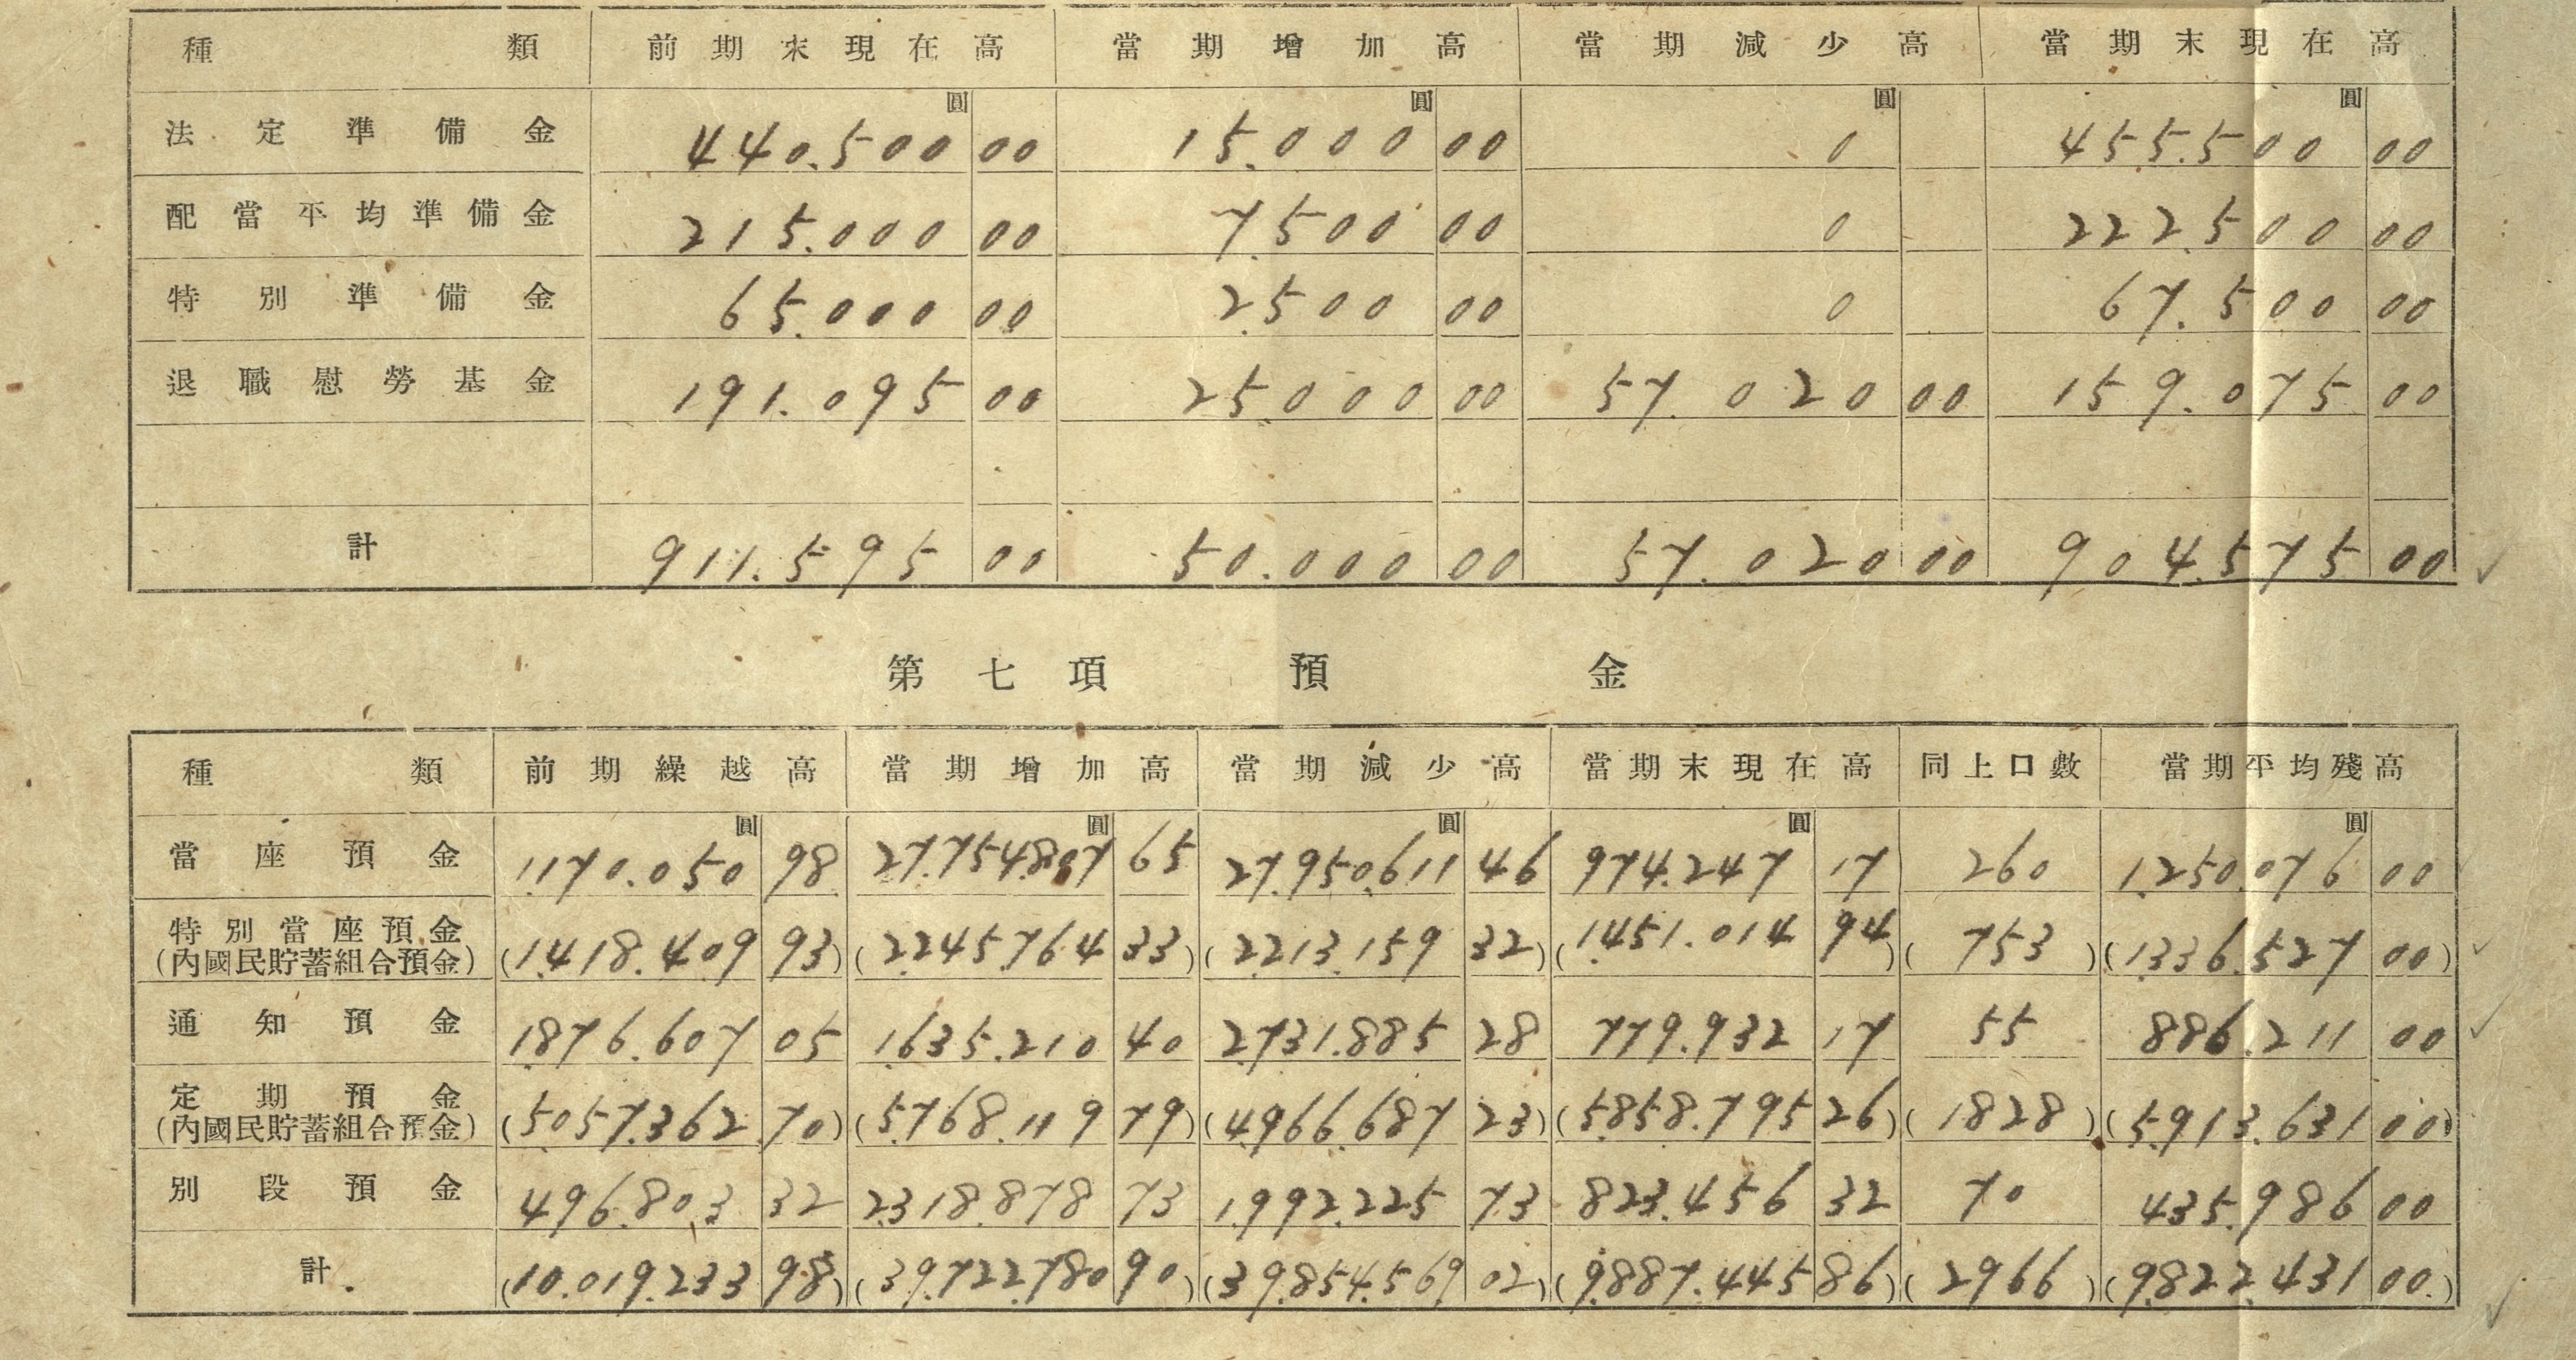 種類 前期末現在高 當期增加高 當期減少高 當期末現在高
圓 圓 圓 圓
法定準備金 440.500 00 15.000 00 0 455.500 00
配當平均準備金 215.000 00 7.500 00 0 222.500 00
特別準備金 65.000 00 2.500 00 0 67.500 00
退職慰勞基金 191.095 00 25.000 00 57.020 00 159.075 00
計 911.595 00 50.000 00 57.020 00 904.575 00
第七項 預金
種類 前期繰越高 當期增加高 當期減少高 當期末現在高 同上口數 當期平均殘高
圓 圓 圓 圓 圓
當座預金 1.170.050 98 27.754.807 65 27.950.611 46 974.247 17 260 1.250.076 00
特別當座預金
(內國民貯蓄組合預金) (1.418.409 93) (2.245.764 33) (2.213.159 32) (1.451.014 94) (753) (1.336.527 00)
通知預金 1.876.607 05 1.635.210 40 2.731.885 28 779.932 17 55 886.211 00
定期預金
(內國民貯蓄組合預金) (5.057.362 70) (5.768.119 79) (4.966.687 23) (5.858.795 26) (1828) (5.913.631 00)
別段預金 496.803 32 2.318.878 73 1.992.225 73 823.456 32 70 435.986 00
計 (10.019.233 98) (39.722.780 90) (39.854.569 02) (9.887.445 86) (2966) (9.822.431 00)